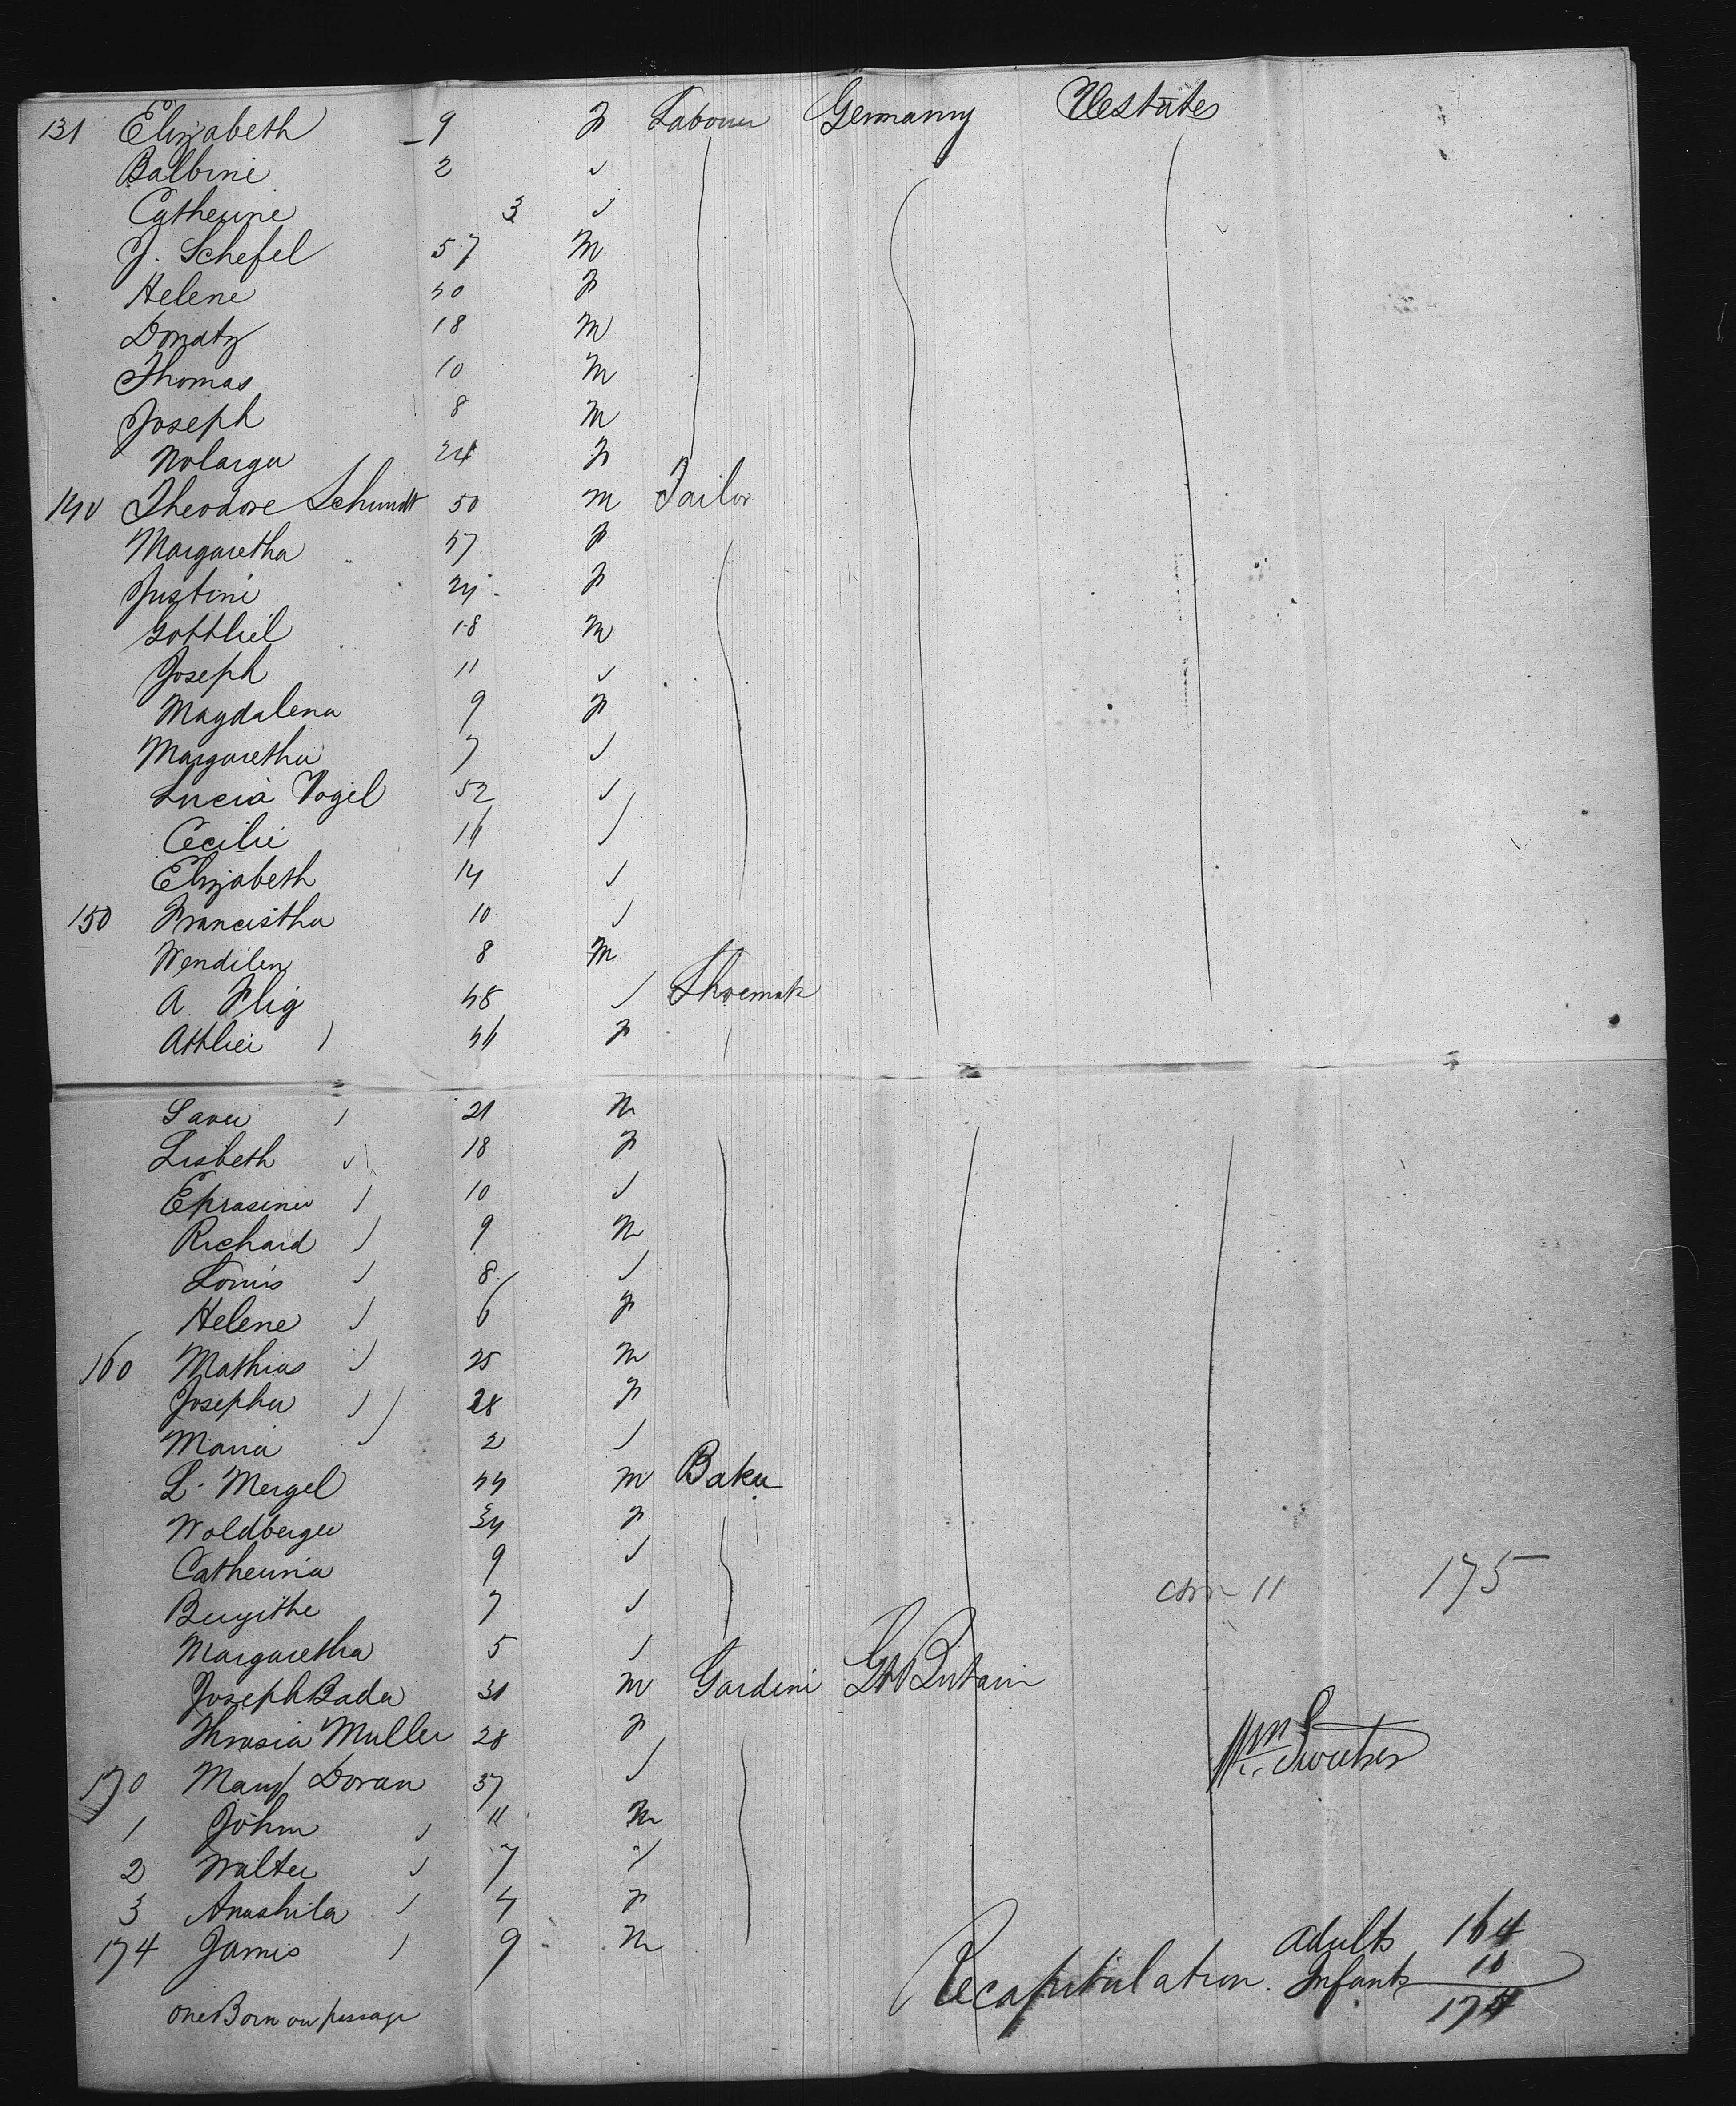 131 Elizabeth 9 F Labourer Germany U States
Balbine 2 "
Catherine 3 "
J. Schefel 57 M
Helene 40 F
Donatz 18 M
Thomas 10 M
Joseph 8 M
24 F
140 Theodore Schmidt 50 M Tailor
Margaretha 47 F
Justine 24 F
Gottliel 18 M
Joseph 11 "
Magdalena 9 F
Margaretha 7 "
Lucia Vogel 52 "
Cecilie 16 "
Elizabeth 14 "
150 Francistha 10 "
Wendilen 8 M
A. Flig 48 " Shoemak
46 F
21 M
Lisbeth " 18 F
Eprasine " 10 "
Richard " 9 M
Louis " 8 "
Helene " 6 F
160 Mathias " 25 M
Josepha " 28 F
Maria " 2 "
L. Mergel 44 M Baker
Woldberger 34 F
Catherina 9 "
Burgithe 7 " 11 175
Margaretha 5 "
Joseph Bader 31 M Gardini Gt Britain
Muller 28 F
Wm
170 Mary Doran 37 "
1 John " 11 M
2 Walter " 7 "
3 " 4 F
174 James " 9 M
Adults 164
Recapitulation. Infants 10
174
One Born on passage